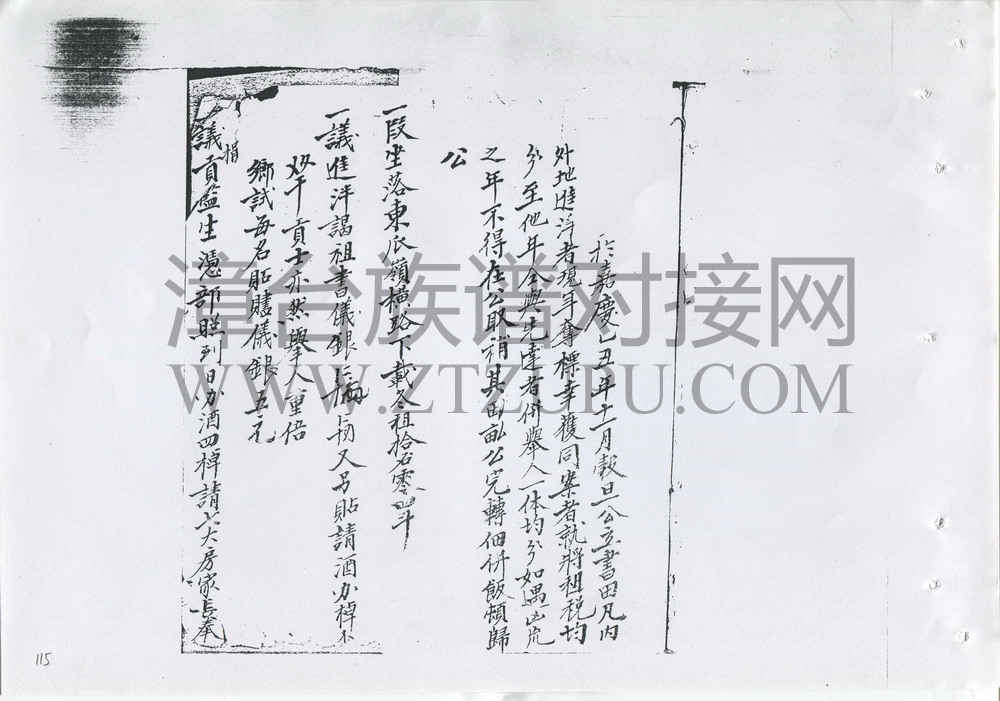 於嘉慶乙丑年十一月穀旦公立書田凡內
外地進泮者現年奪標幸獲同案者就將租稅均
分至他年今與先達者併舉人一体均分如遇凶荒
之年不得在公取補其田畝公完轉佃併飯頓歸
公
一段坐落東瓜嶺橫路下載冬租拾石零四斗
一議進泮謁祖書儀銀 又另貼請酒办棹不
干貢士亦然舉人重倍
鄉試每名賍贐儀銀五元
一議貢監生憑部照到日办酒四棹請六大房家長奉
捐
漳台族谱对接网
WWW.ZTZUPU.COM
115